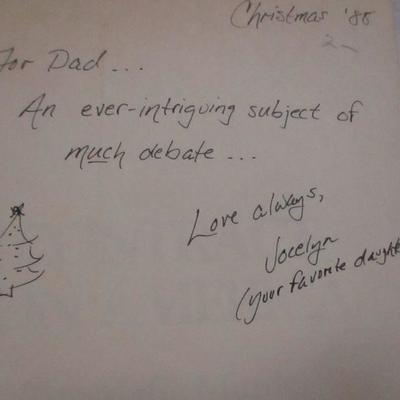 Christmas '88
2-
For Dad ...
An ever-intriguing subject of
much debate ...
Love always,
Jocelyn
(your favorite daughter